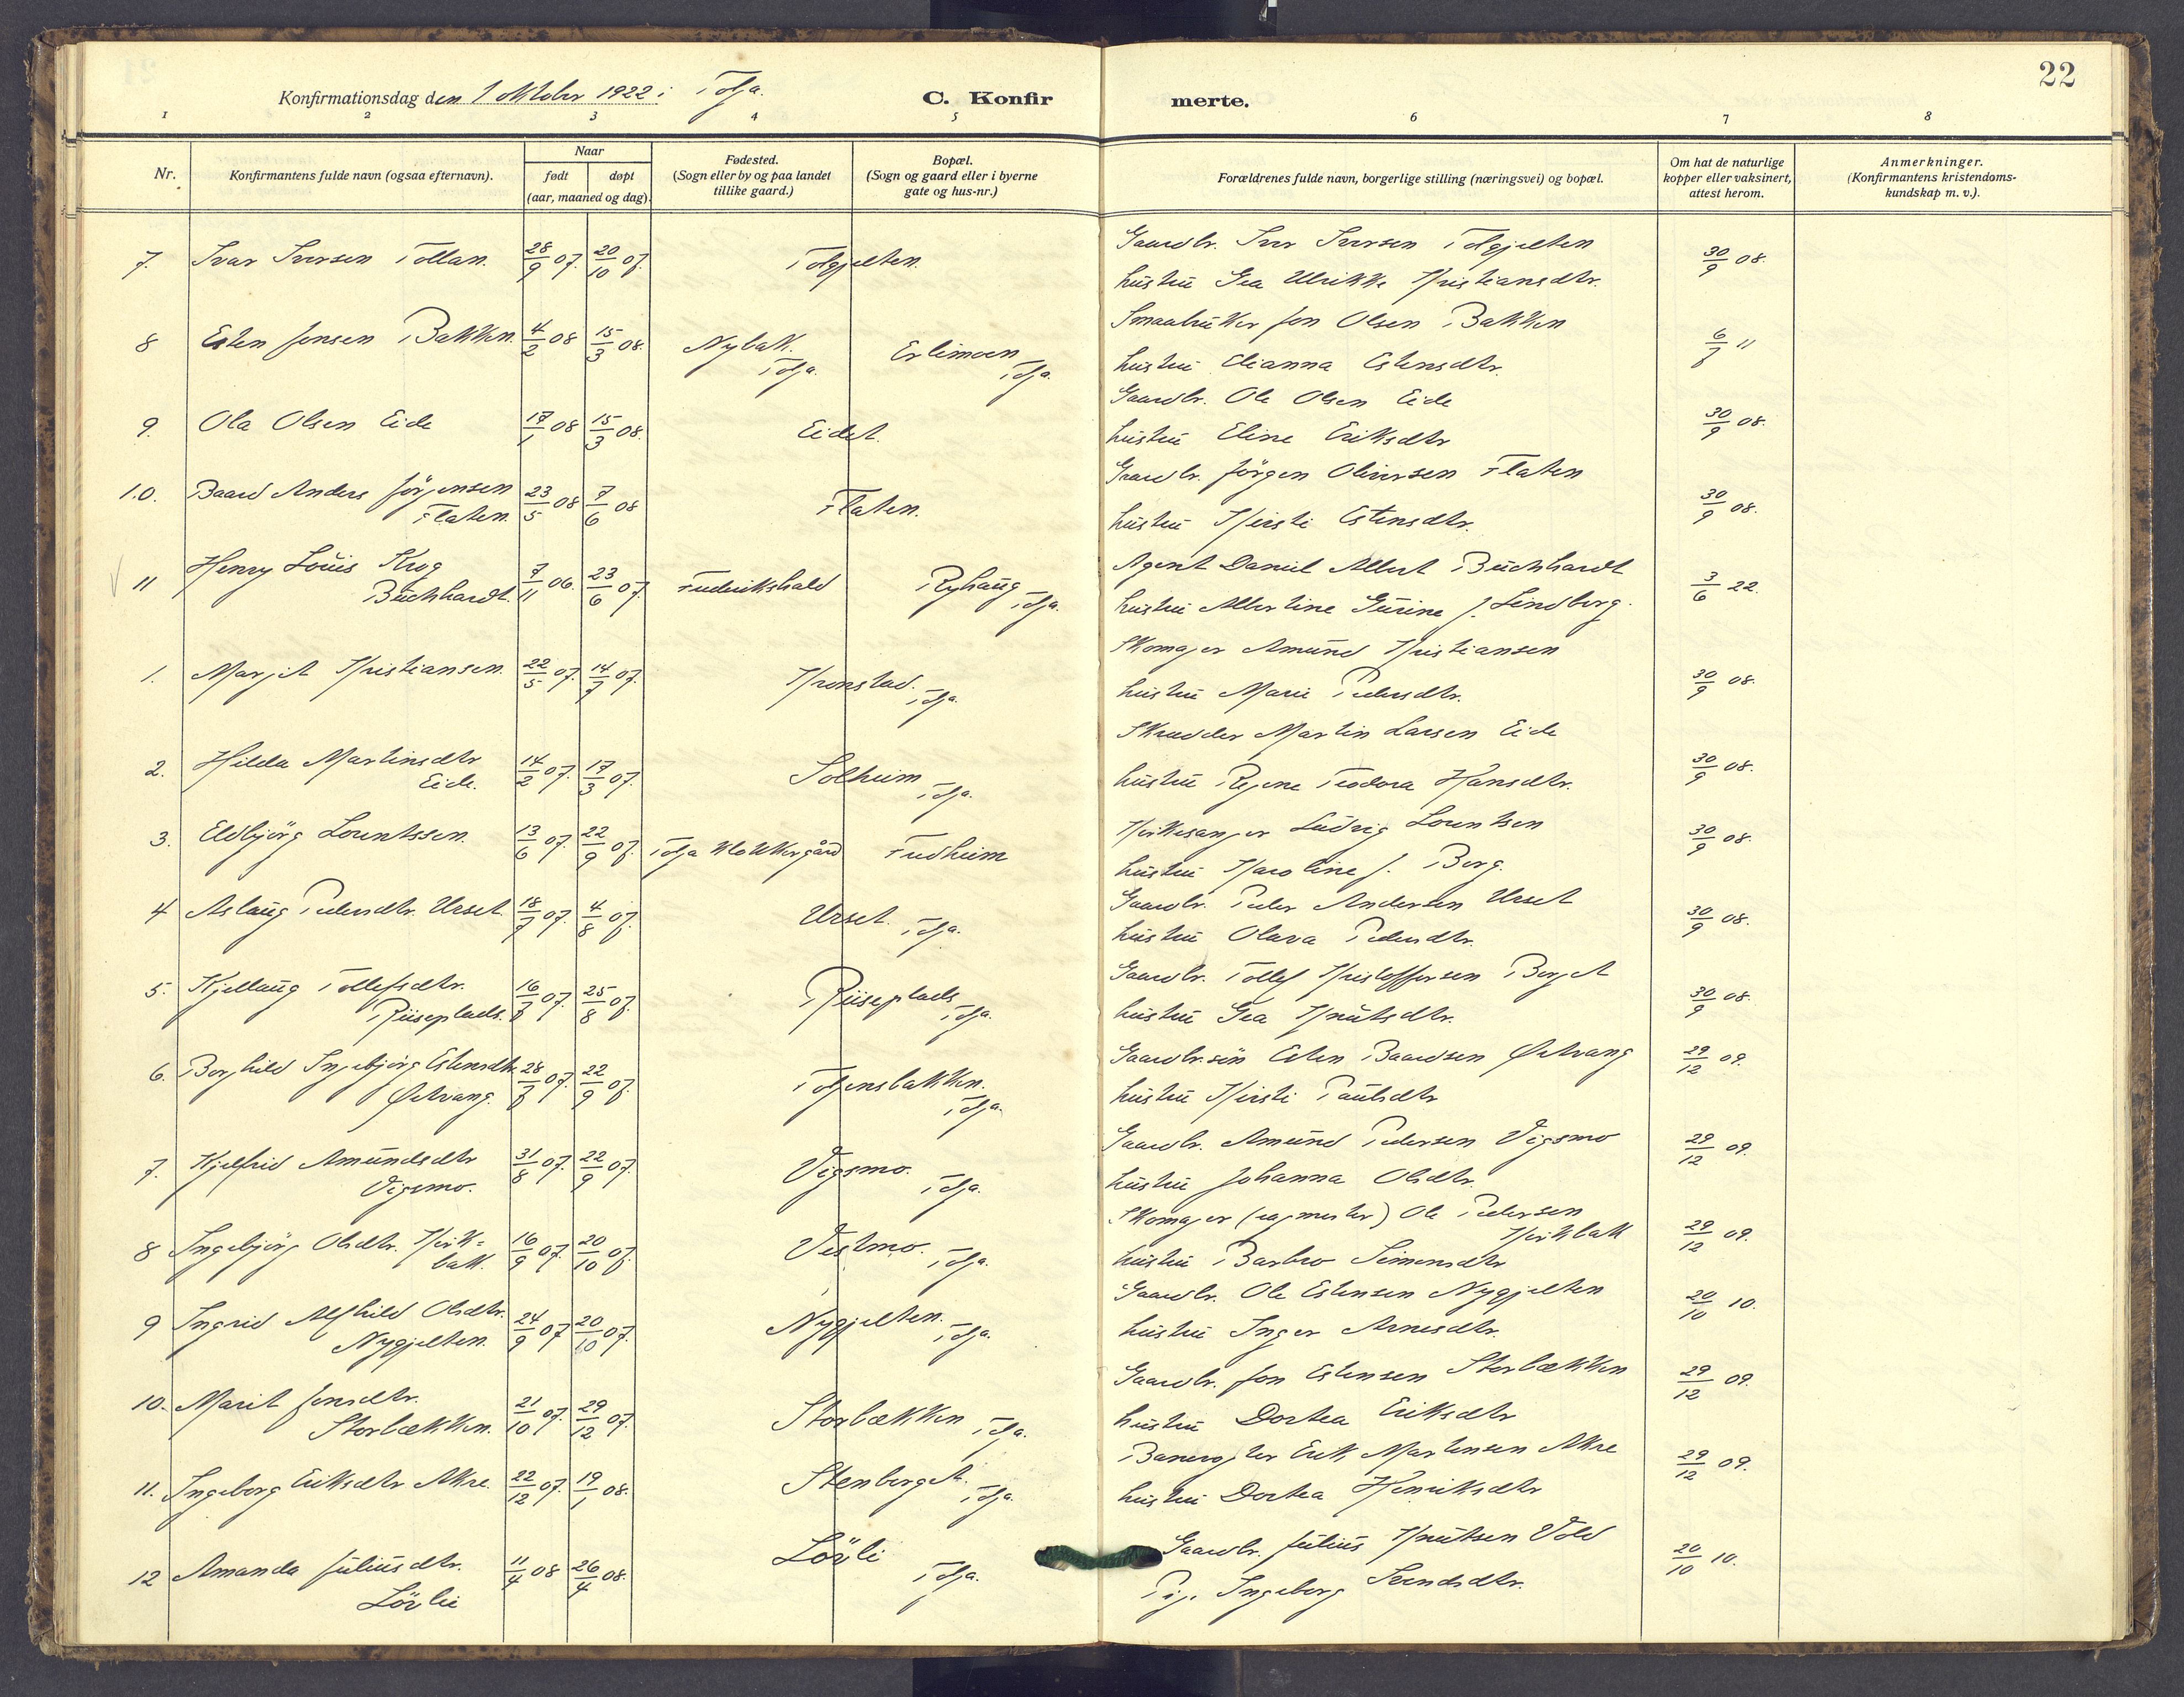 22
Konfirmationsdag den 1 oktober 1922 i Tolga.
C. Konfirmerte.
1 2 3 4 5 6 7 8
Nr.
Konfirmantens fulde navn (ogsaa efternavn).
Naar
født døpt
(aar, maaned og dag).
Fødested.
(Sogn eller by og paa landet
tillike gaard.)
Bopæl.
(Sogn og gaard eller i byerne
gate og hus-nr.)
Forældrenes fulde navn, borgerlige stilling (næringsvei) og bopæl.
Om hat de naturlige
kopper eller vaksinert,
attest herom.
Anmerkninger.
(Konfirmantens kristendoms-
kundskap m. v.).
7. Ivar Iversen Tollan. 28/9 07. 20/10 07. Tolgjelten. Gaardbr. Iver Iversen Tolgjelten 30/9 08.
hustru Gea Ulrikke Kristiansdtr.
8 Esten Jonsen Bakken. 4/2 08 15/3 08. Nybak. Tolga. Erlimoen Tolga. Smaabruker Jon Olsen Bakken 6/7 11
hustru Elianna Estensdtr.
9. Ola Olsen Eide 17/1 08 15/3 08. Eidet. Gaardbr. Ole Olsen Eide 30/9 08.
hustru Eline Eriksdtr
10. Baard Anders Jörgensen 23/5 08 7/6 08 Flaten. Gaardbr. Jörgen Oliversen Flaten 30/9 08.
Flaten. hustru Kirsti Estensdtr.
11 Henry Louis Krog 7/11 06. 23/6 07. Frederikshald Ryhaug Tolga. Agent Daniel Albert Buchhardt 3/6 22.
Buchhardt. hustru Albertine Gurine f. Lindberg.
1. Margit Kristiansen. 22/5 07. 14/7 07. Kronstad. Tolga. Skomager Amund Kristiansen 30/9 08.
hustru Marie Pedersdtr.
2. Hilda Martinsdtr 14/2 07. 17/3 07. Solheim Tolga. Skrædder Martin Larsen Eide 30/9 08.
Eide. hustru Regine Teodora Hansdtr.
3. Eldbjörg Lorentssen. 13/6 07. 22/9 07. Tolga klokkergård Fredheim Kirkesanger Ludvig Lorentsen 30/9 08.
hustru Karoline f. Berg.
4 Aslaug Pedersdtr. Urset. 18/7 07. 4/8 07. Urset. Tolga. Gaardbr. Peder Andersen Urset 30/9 08.
hustru Olava Pedersdtr.
5. Kjellaug Tollefsdtr. 16/7 07. 25/8 07. Riiseplads Tolga. Gaardbr. Tollef Kristoffersen Berget 30/9 08.
Riiseplads. hustru Gea Knutsdtr.
6. Borghild Ingebjörg Estensdtr. 28/7 07. 22/9 07. Tolgensbakken. Tolga. Gaardbr.sön Esten Baardsen Østvang 29/12 09.
Østvang. hustru Kirsti Paulsdtr
7. Kjelfrid Amundsdtr 31/8 07. 22/9 07. Vigsmo. Tolga. Gaardbr. Amund Pedersen Vigsmo 29/12 09.
Vigsmo. hustru Johanna Olsdtr.
8 Ingebjörg Olsdtr. Kirk= 16/9 07. 20/10 07. Vestmo. Tolga. Skomager Ole Pedersen 29/12 09.
bak. Kirkbak
hustru Barbro Simensdtr
9 Ingrid Alfhild Olsdtr. 24/9 07 20/10 07. Nygjelten. Tolga. Gaardbr. Ole Estensen Nygjelten 20/10 10.
Nygjelten. hustru Inger Arnesdtr.
10. Marit Jonsdtr. 21/10 07. 29/12 07. Storbækken Tolga. Gaardbr. Jon Estensen Storbækken 29/12 09.
Storbækken. hustru Dortea Eriksdtr
11. Ingeborg Eriksdtr Akre. 22/12 07. 19/1 08. Stenberget. Tolga. Banevogter Erik Martensen Akre 29/12 09.
hustru Dortea Henriksdtr
12 Amanda Juliusdtr. 11/4 08 26/4 08. Lövli Tolga. Gaardbr. Julius Knutsen Vold 20/10 10.
Lövlie Pige Ingeborg Svendsdtr.